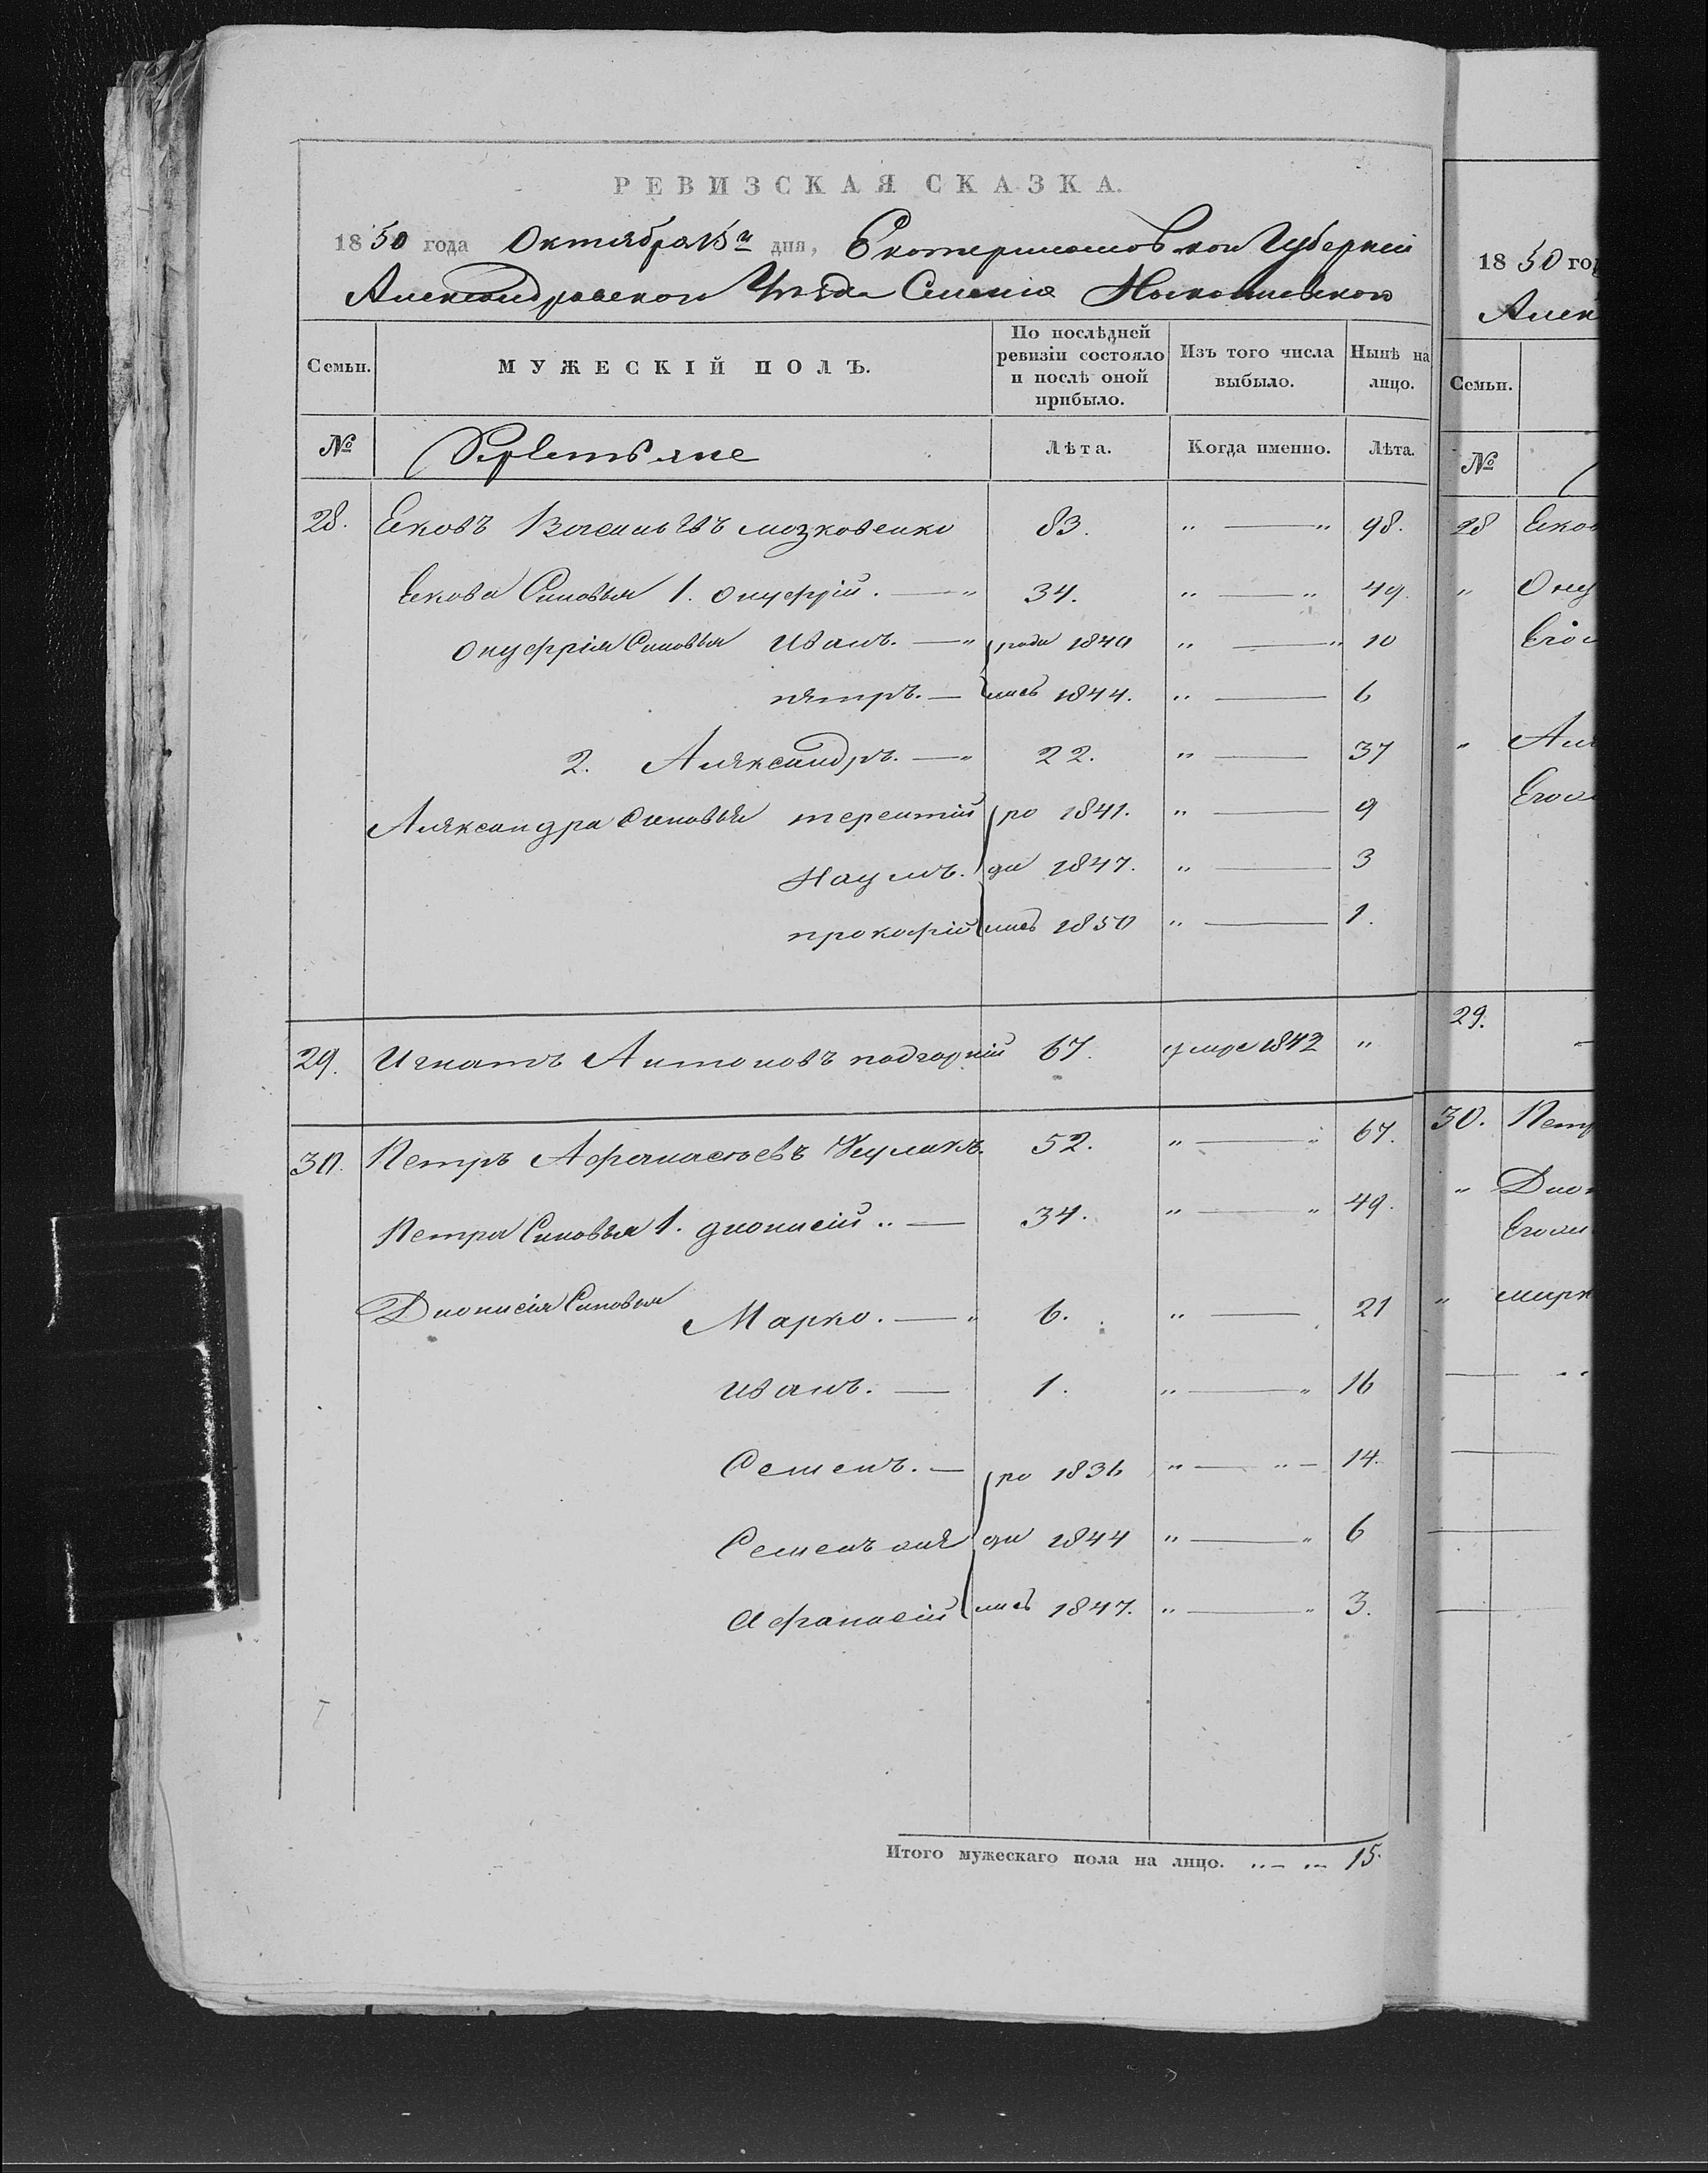 РЕВИЗСКАЯ СКАЗКА.
1850 года Октября 15го дня, Екатеринославской Губерніи
Александровскаго Уѣзда Селенія
По послѣдней ревизіи состояло и послѣ оной прибыло.
Изъ того числа выбыло.
Нынѣ на лицо.
Семьи. МУЖЕСКІЙ ПОЛЪ.
№ Лѣта. Когда именно. Лѣта.
28. Ековъ Васильевъ мозковенко 83. „ — „ 98.
Екова Синовья 1. онуфрій. — „ 34. „ — „ 49.
онуфрія Синовья Иванъ. — „ роди 1840 „ — „ 10
пятръ. — лись 1844. „ — 6
2. Аляксандръ. — „ 22. „ — 37
Аляксандра Синовья терентій ро 1841. „ — 9
Наумъ. ди 1847. „ — 3
прокофій лись 1850 „ — 1.
29. Игнатъ Антоновъ подгорній 67. умре 1842 „
30. Петръ Афанасьевъ Кулакъ. 52. „ — „ 67.
Петра Синовья 1. дионисій „ — 34. „ — „ 49.
Дионисія Синовья Марко. — „ 6. „ — 21
иванъ. — 1. „ — „ 16
Семенъ. — ро 1836 „ — „ — 14.
Семенъ же ди 1844 „ — „ 6
Афанасій лись 1847. „ — „ 3.
Итого мужескаго пола на лицо. „ — „ — 15.
1850 го
Алек
Семьи.
№
28 Еков
„ Ону
Его
„ Аля
Его
29.
30. Петр
„ Дион
Его
„ марк